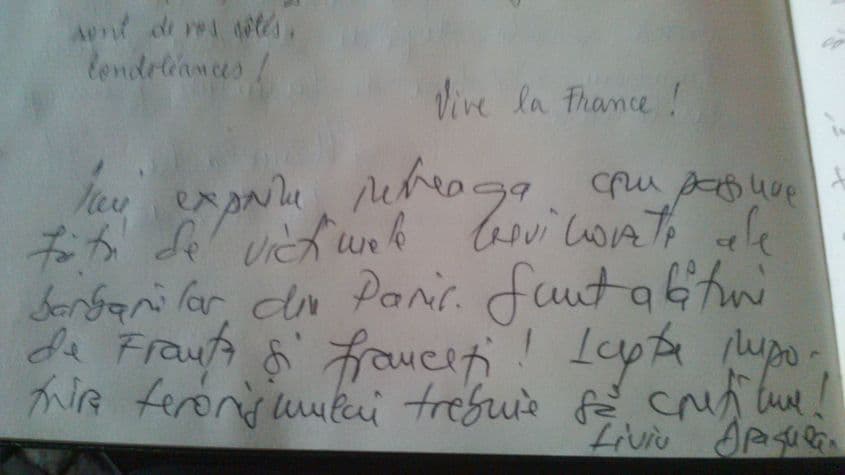 sont de vos côtés.
Condoléances !
Vive la France !
Îmi exprim întreaga compasiune
față de victimele nevinovate ale
barbarilor din Paris. Sunt alături
de Franța și francezi! Lupta împo-
triva terorismului trebuie să continue!
Liviu Dragnea.